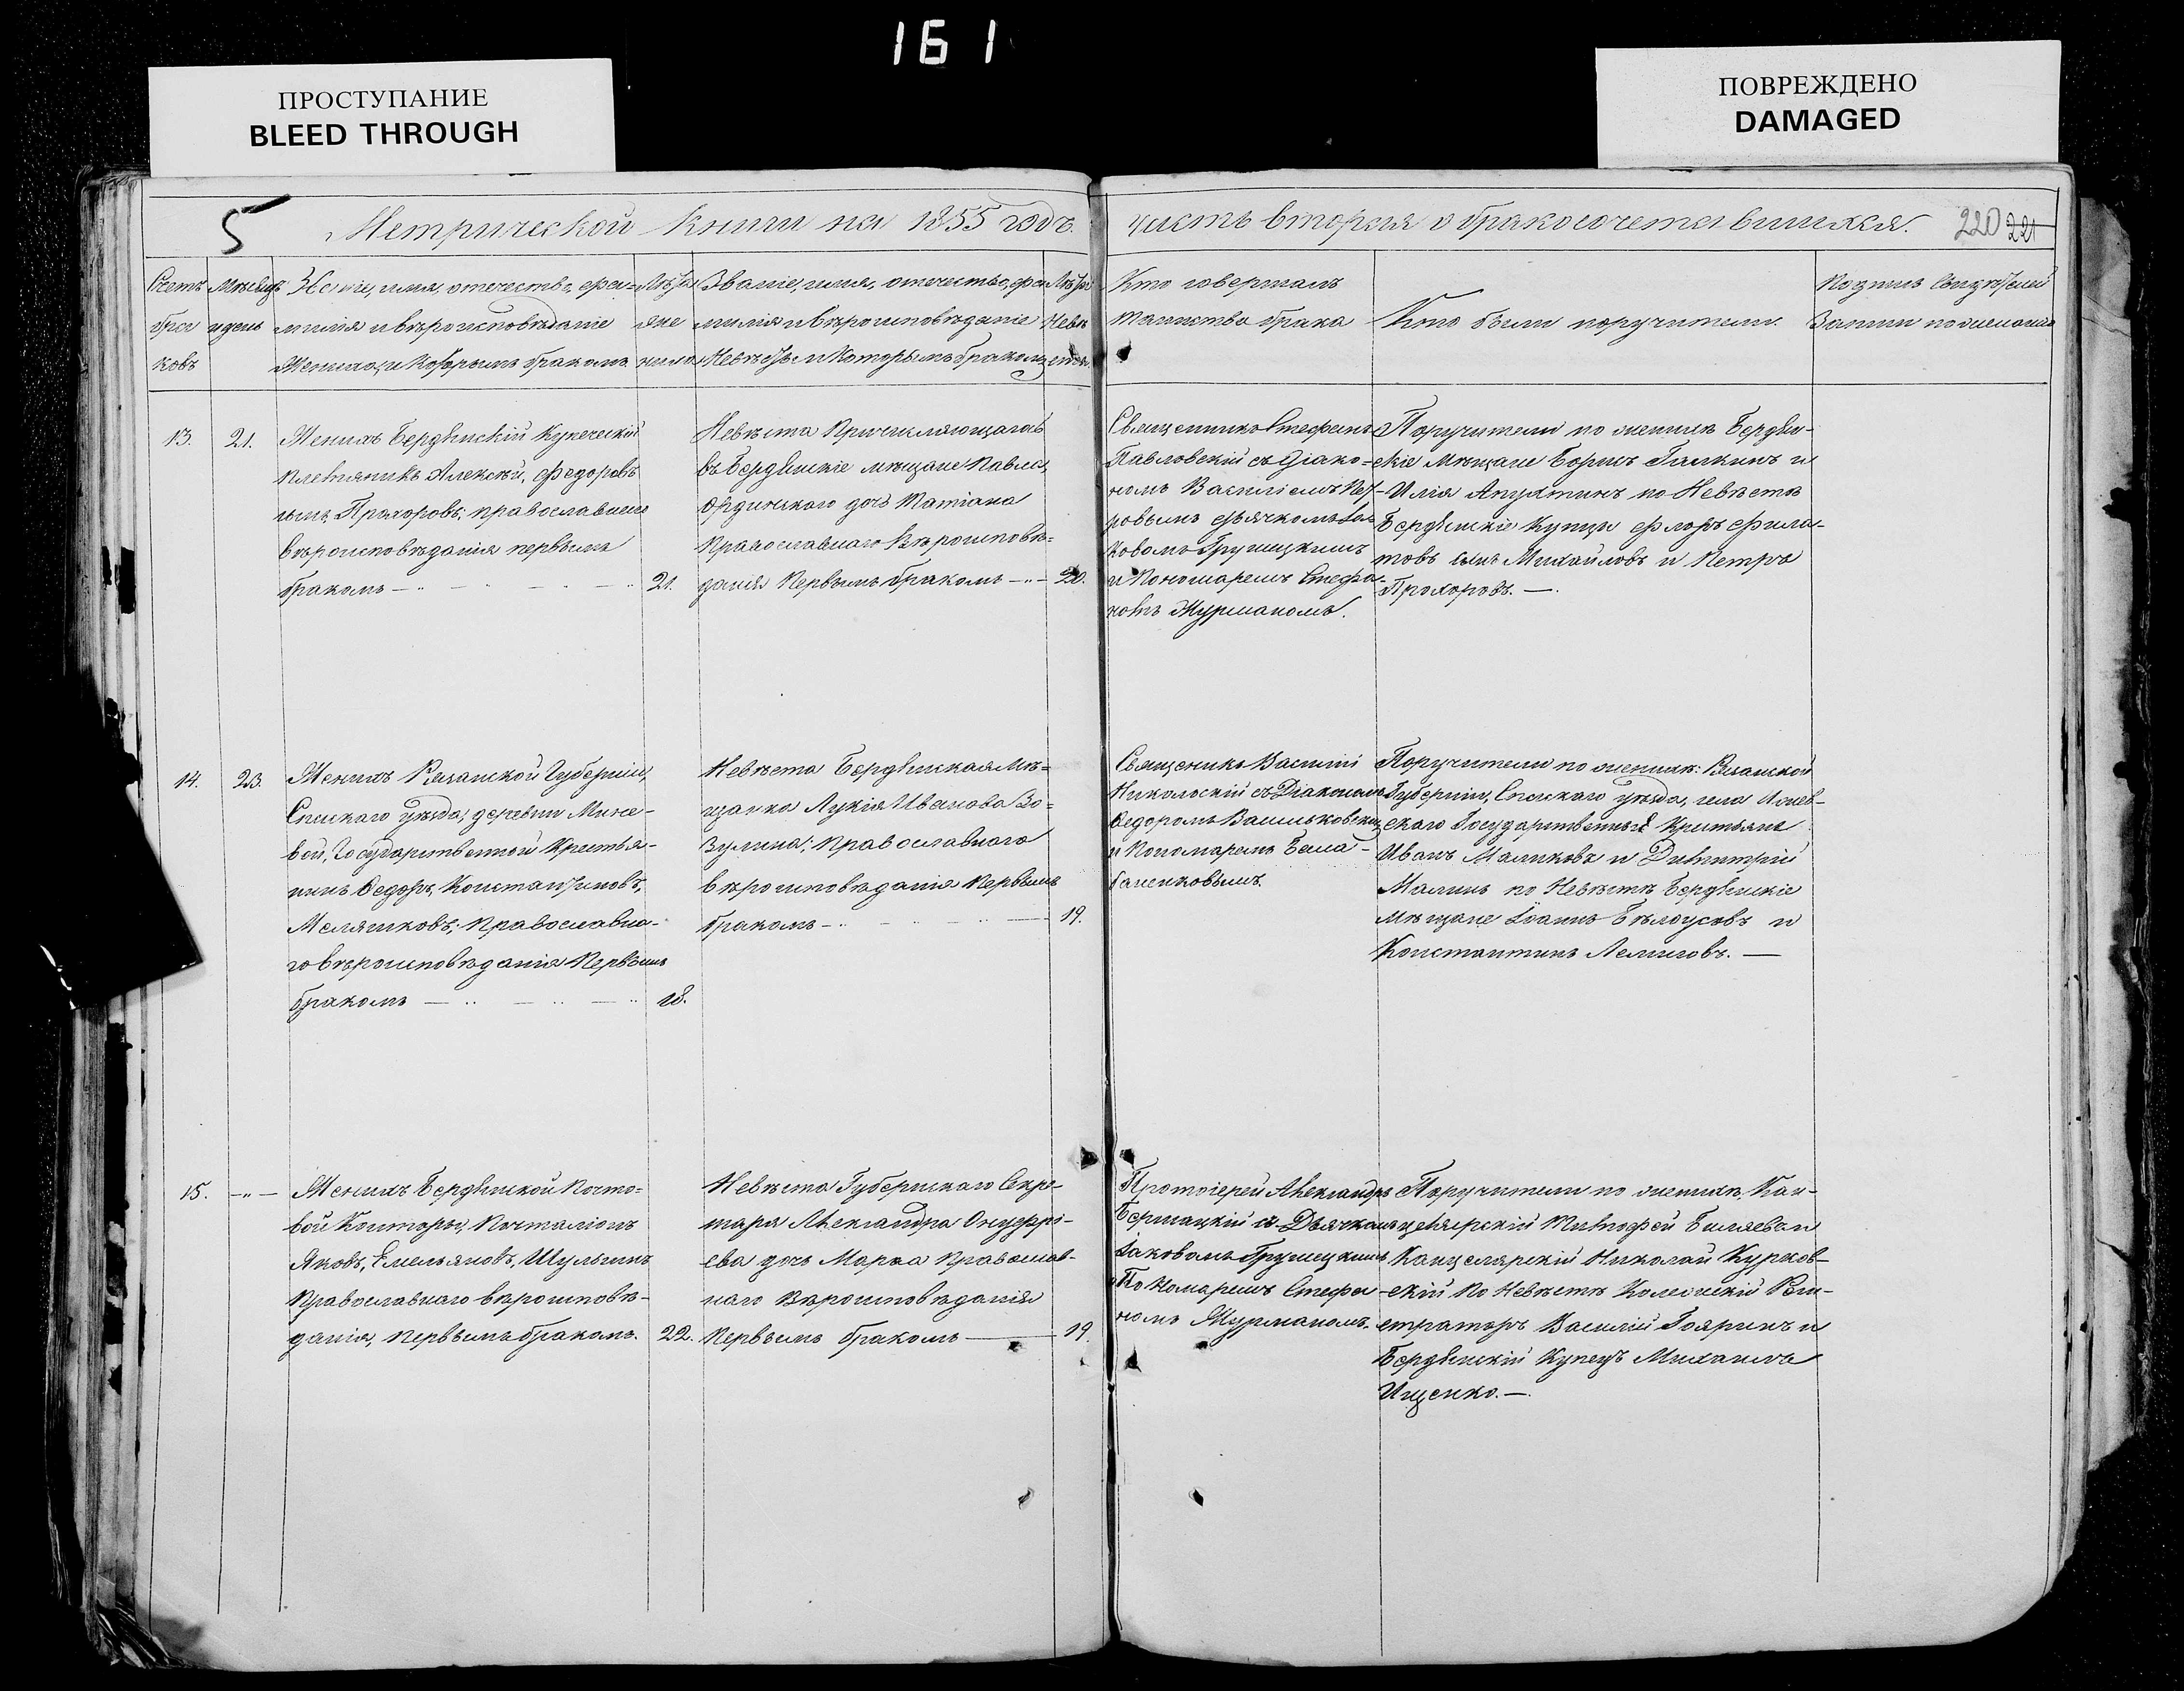 161
ПРОСТУПАНИЕ
BLEED THROUGH
ПОВРЕЖДЕНО
DAMAGED
5
Метрической книги на 1855 годъ.
часть вторая о бракосочетавшихся.
220 221
Счетъ
бра
ковъ
Мѣсяцъ
и день
Званіе, имя, отечество, фа=
милія и вѣроисповѣданіе
Жениха, и которымъ бракомъ
Лѣта
же
ниха
Званіе, имя, отечество, фа
милія и вѣроисповѣданіе
Невѣсты и Которымъ бракомъ
Лѣта
Невѣ
сты.
Кто совершалъ
таинство брака
Кто были поручители.
Подпись свидѣтелей
Записи по желанію
13.
21.
Женихъ Бердянскій Купеческій
племянникъ Алексѣй, Федоровъ
сынъ, Прохоровъ; православнаго
вѣроисповѣданія первымъ
бракомъ
21.
Невѣста Причисляющагося
въ Бердянскіе мѣщане Павла
Ординскаго дочь Татіана
Православнаго Вѣроисповѣ=
данія Первымъ бракомъ
20.
Священникъ Стефанъ
Павловскій съ Діако=
номъ Василіемъ Пет
ровымъ дьячкомъ Іа
ковомъ Грушецкимъ
и Пономаремъ Стефа
номъ Журманомъ.
Поручители по женихѣ Бердян-
скіе Мѣщане Борисъ Галкинъ и
Илія Апухтинъ по Невѣстѣ
Бердянскіе Купцы Флоръ Фила-
товъ сынъ Михайловъ и Петръ
Прохоровъ.
14.
23.
Женихъ Рязанской Губерніи,
Спаскаго уѣзда, деревни Мине-
вой, Государственной Крестья-
нинъ Ѳедоръ, Константиновъ,
Меляшковъ; Православна-
го вѣроисповѣданія Первымъ
бракомъ
18.
Невѣста Бердянская Мѣ=
щанка Лукія Иванова Во=
зулина; Православнаго
вѣроисповѣданія Первымъ
бракомъ
19.
Священникъ Василій
Никольскій съ Діакономъ
Ѳедоромъ Васильковскимъ
и Пономаремъ Бала-
баненковымъ.
Поручители по женихѣ: Рязанской
Губерніи, Спаскаго уѣзда, села
скаго Государственные Крестьяне
Иванъ Маликовъ и Димитрій
Малинъ по Невѣстѣ Бердянскіе
Мѣщане Іоаннъ Бѣлоусовъ и
Константинъ
15.
Женихъ Бердянской Почто=
вой Конторы, Почталіонъ
Яковъ, Емельяновъ, Шульгинъ
Православнаго вѣроисповѣ-
данія, первымъ бракомъ.
22.
Невѣста Губернскаго Секре-
таря Александра Онуфрі-
ева дочь Марѳа Православ-
наго Вѣроисповѣданія
Первымъ бракомъ
19.
Протоіерей Александръ
съ Дьячкомъ
Іаковомъ Грушецкимъ
Пономаремъ Стефа
номъ Журманомъ.
Поручители по женихѣ Кан-
целярскій Тимофей Биляевъ и
Канцелярскій Николай Курков-
скій по Невѣстѣ Колежскій Реги-
страторъ Василій Бояринъ и
Бердянскій Купецъ Михаилъ
Ищенко.